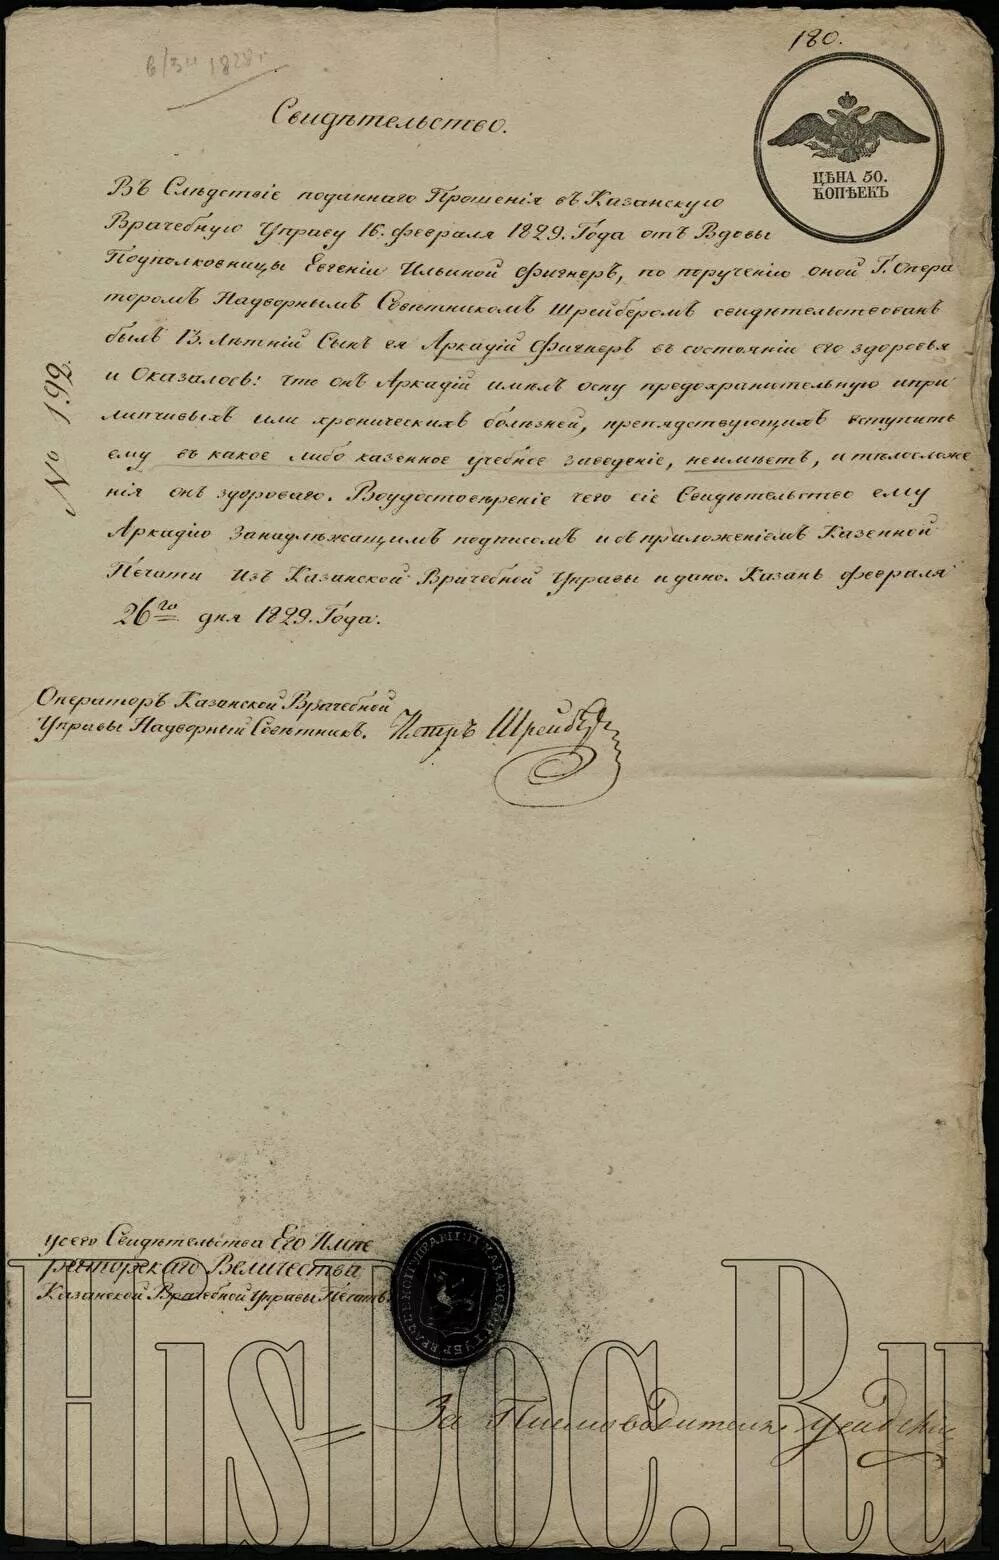 180.
в/3 ч 1828 г
Свидѣтельство.
ЦѢНА 50.
КОПѢЕКЪ
ВЪ Слѣдствіе поданнаго Прошенія въ Казанскую
Врачебную Управу 16. февраля 1829. Года отъ Вдовы
Подполковницы Евгеніи Ильиной Фигнеръ, по порученію оной Г. Опера
торомъ Надворнымъ Совѣтникомъ Шрейберомъ свидѣтельствованъ
былъ 13. Лѣтній Сынъ ея Аркадій Фигнеръ въ состояніи его здоровья
и Оказалось: что онъ Аркадій имѣлъ оспу предохранительную ипри
липчивыхъ или хроническихъ болѣзней, препядствующихъ вступить
ему въ какое либо казенное учебное заведеніе, неимѣетъ, и тѣлосложе
нія онъ здороваго. Воудостовѣреніе чего сіе Свидѣтельство ему
Аркадію Занадлѣжащимъ подписомъ исъ приложеніемъ Казенной
Печати изъ Казанской Врачебной Управы и дано. Казань февраля
26го дня 1829. Года.
№ 192.
Операторъ Казанской Врачебной
Управы Надворный Совѣтникъ. Петръ Шрейберъ
усего Свидѣтельства Его Импе
раторскаго Величества
Казанской Врачебной Управы Печать.
За Писмоводителя
HisDoc.Ru